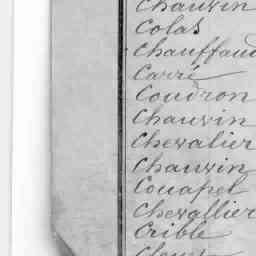 Chauvin
Colas
Chauffaud
Carré
Coudron
Chauvin
Chevalier
Chauvin
Couapel
Chevallier
Crible